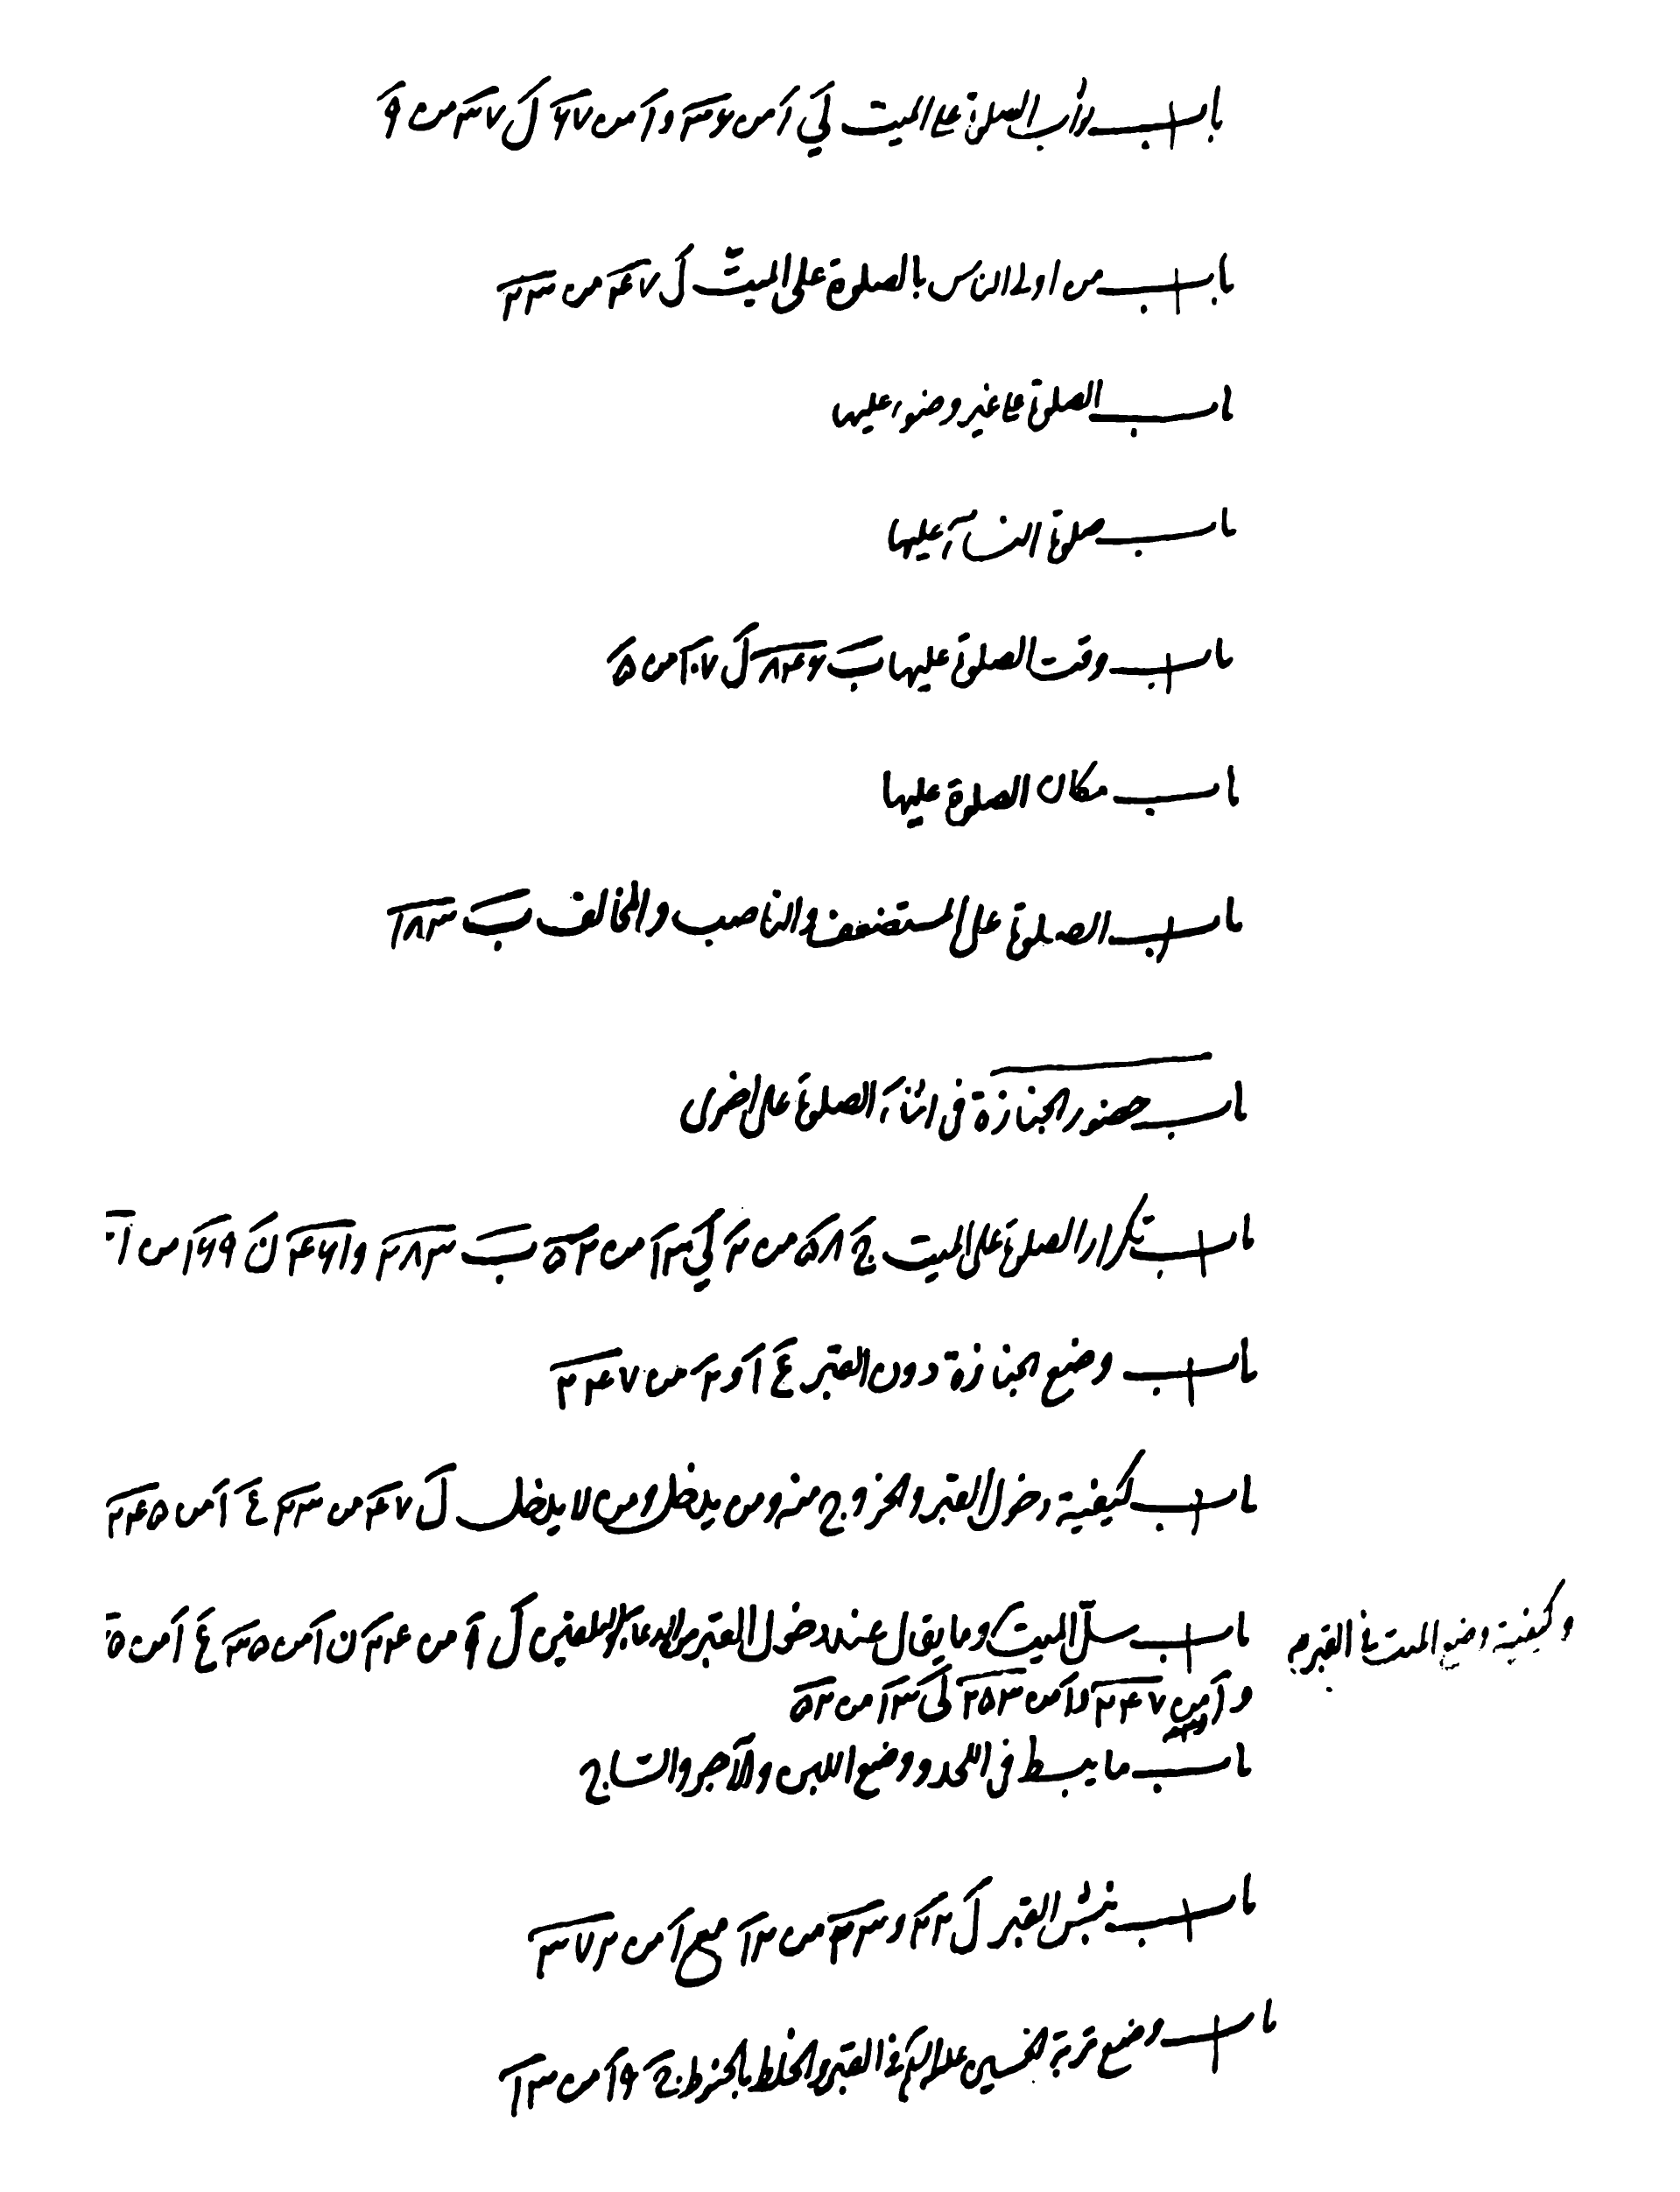 باب ثواب الصلوة على الميت لي ا من ٣٤٦ وا من ٦٧ ل ٣٧ من ٩
باب من اولى الناس بالصلوة على الميت ل ٤٧ من ٢٣
باب الصلوة على غير وضوء عليها
باب صلوة النسآء عليها
باب وقت الصلوة عليها ب ٨٤٦ ل ١٠٧ من ٥
باب مكان الصلوة عليها
باب الصلوة على المستضعف والناصب والمخالف ب ١٨٣
باب حضور الجنازة في اثناء الصلوة على اخرى
باب تكرار الصلوة على الميت ج ٥٨ من ٢ لي ١٣ من ٥٢ ب ٢٨٣ و ٤٦١ ن ١٦٩ من
باب وضع الجنازة دون القبر ع ا و ٢ من ٢٤٧
باب كيفية دخول القبر والخروج منه ومن يدخل ومن لا يدخل ل ٤٧ من ٢٣ ع ا من ٢٤٥
باب سلّ الميت وما يقال عند دخول القبر من الدعاء والتلقين ل ٩ من ٢٤ ن ا من ٣٥ ع ا من
وكيفية وضع الميت في القبر
و ا من ٢٤٧ وا من ٢٥٣ لي ١٣ من ٥٢
باب ما يبسط في اللحد ووضع اللبن والآجر والساج
باب نبش القبر ل ٢٢ و ٣٣ من ١٢ مع ا من ٣٧٢
باب وضع تربة الحسين عليه السلم في القبر والخلط بالحنوط ج ١٩ من ١٣